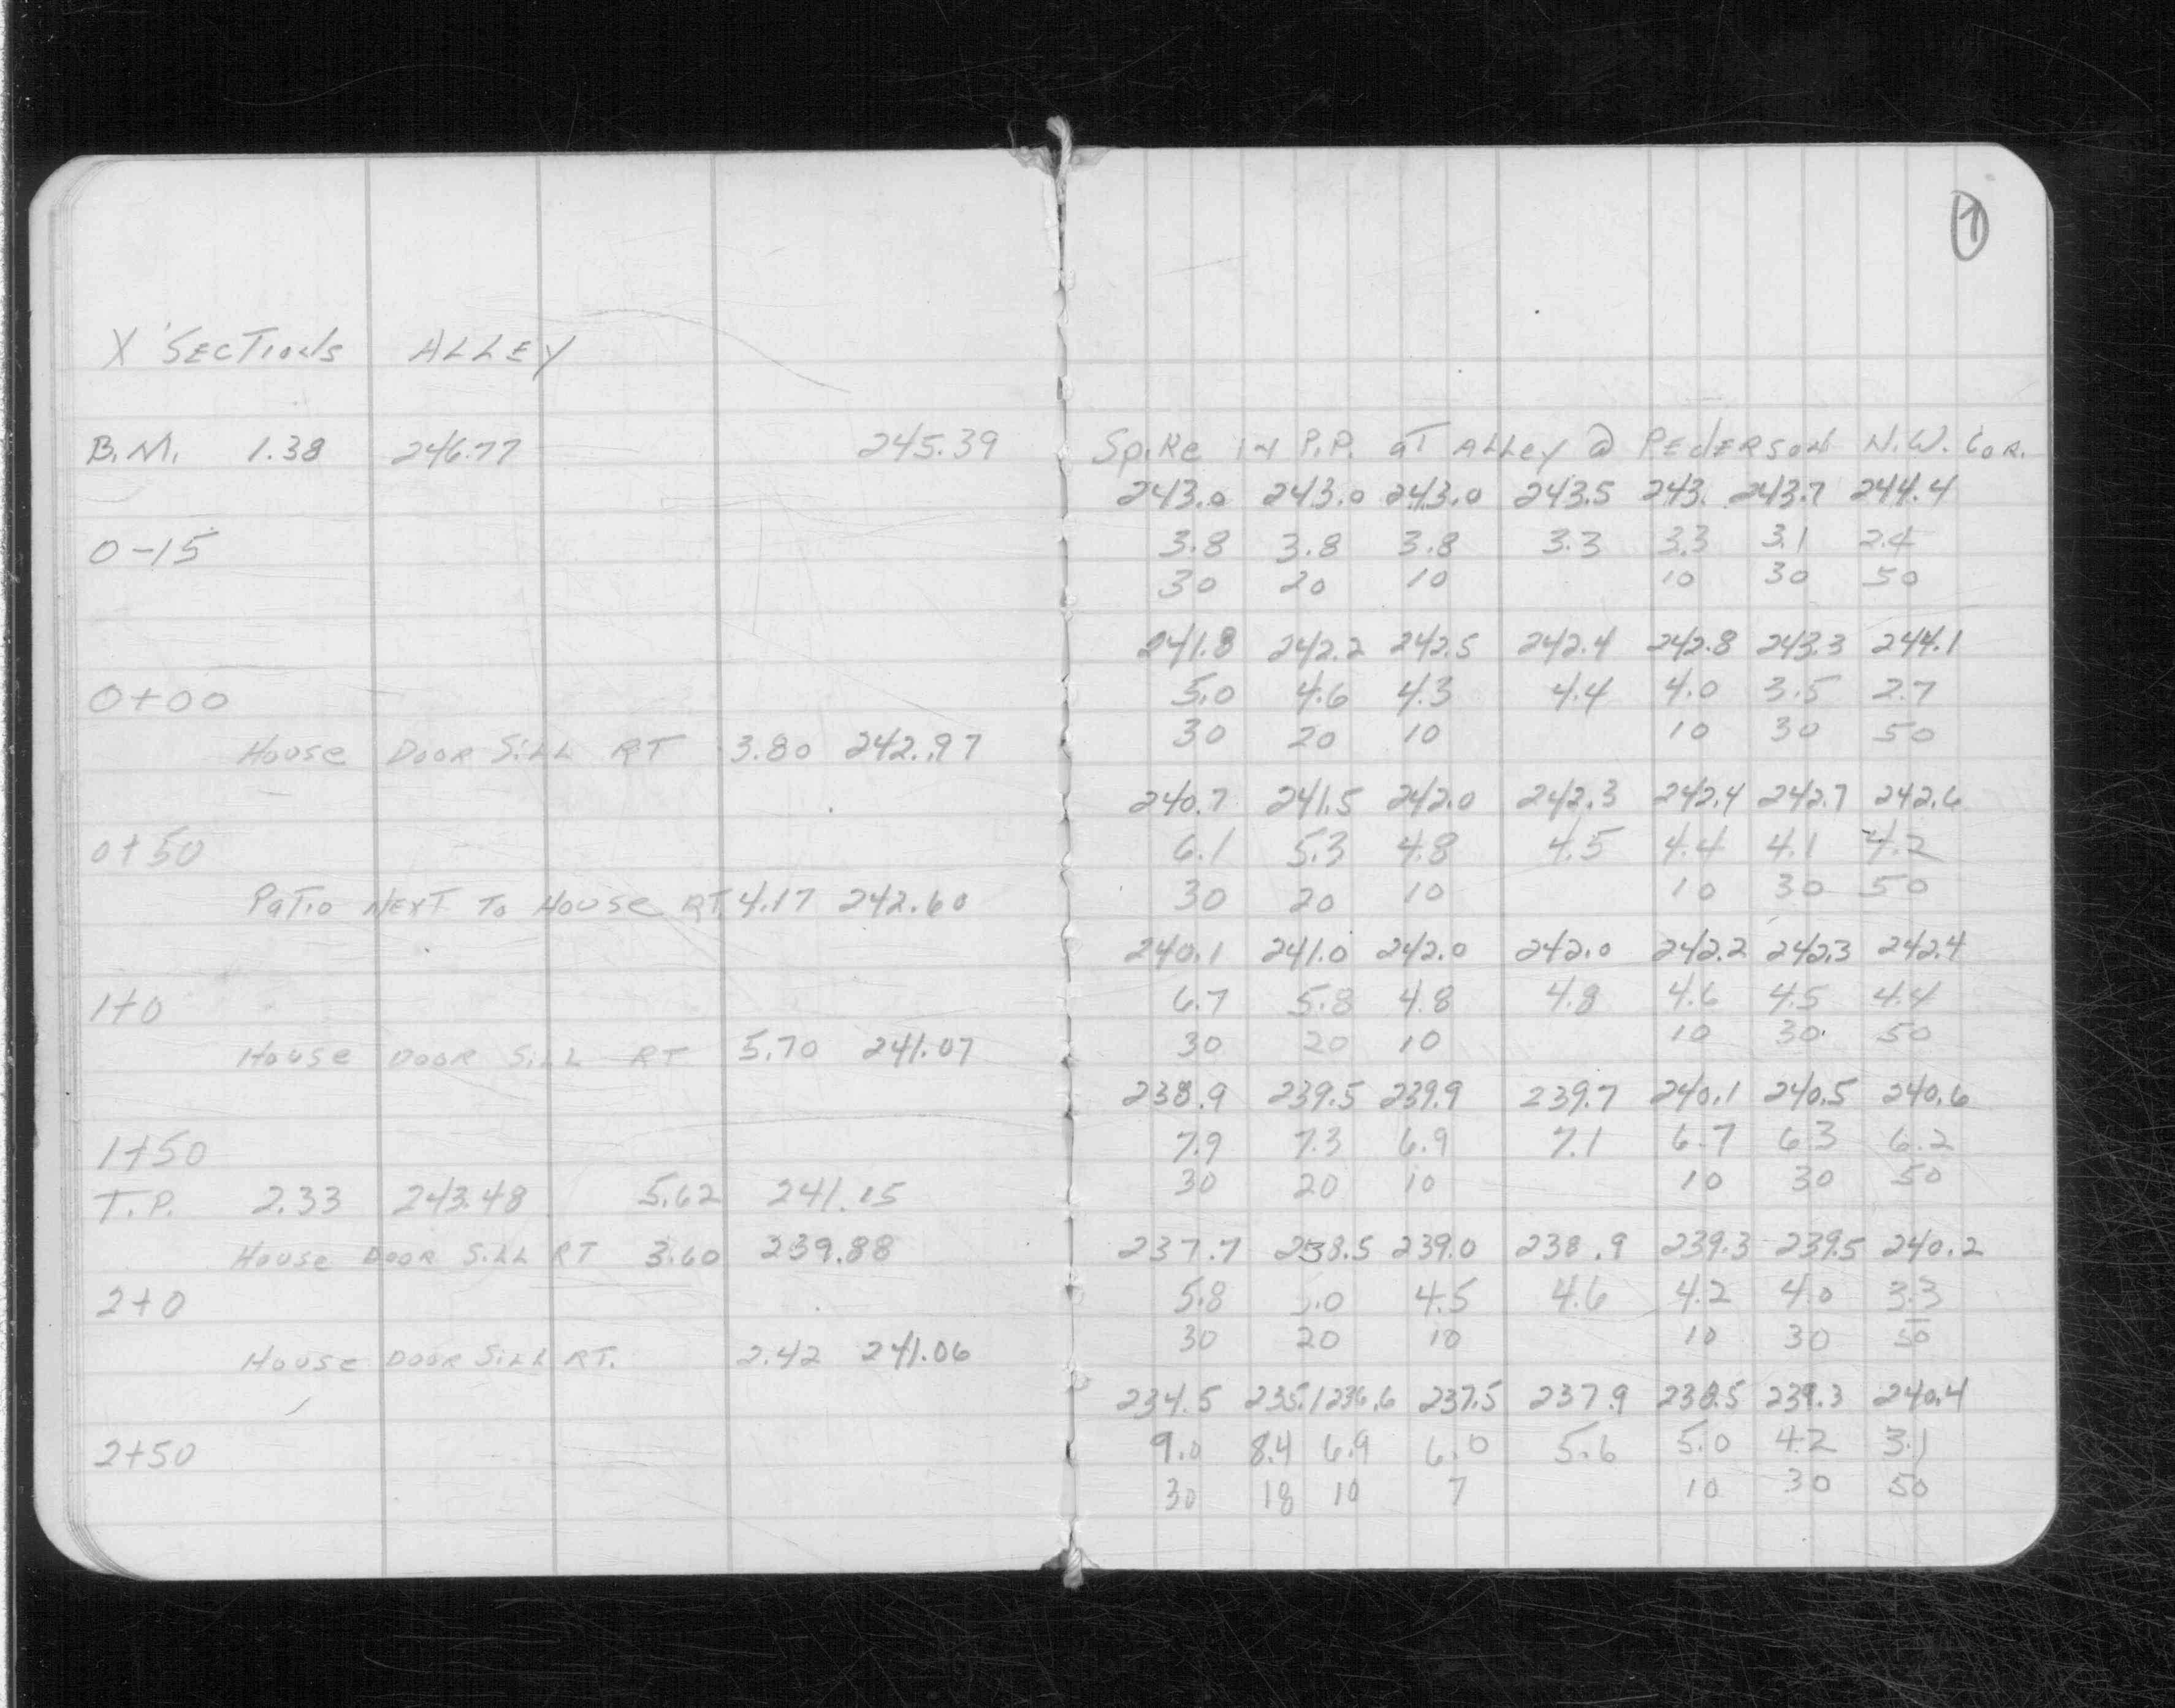 1
X SECTIONS ALLEY
B.M. 1.38 246.77 245.39 Spike in P.P. at Alley @ PEDERSON N.W. Cor.
243.0 243.0 243.0 243.5 243. 243.7 244.4
0-15 3.8 3.8 3.8 3.3 3.3 3.1 2.4
30 20 10 10 30 50
241.8 242.2 242.5 242.4 242.8 243.3 244.1
0+00 5.0 4.6 4.3 4.4 4.0 3.5 2.7
House Door Sill RT 3.80 242.97 30 20 10 10 30 50
240.7 241.5 242.0 242.3 242.4 242.7 242.6
0+50 6.1 5.3 4.8 4.5 4.4 4.1 4.2
Patio Next To House RT 4.17 242.60 30 20 10 10 30 50
240.1 241.0 242.0 242.0 242.2 242.3 242.4
1+0 6.7 5.8 4.8 4.8 4.6 4.5 4.4
House Door Sill RT 5.70 241.07 30 20 10 10 30 50
238.9 239.5 239.9 239.7 240.1 240.5 240.6
1+50 7.9 7.3 6.9 7.1 6.7 6.3 6.2
T.P. 2.33 243.48 5.62 241.15 30 20 10 10 30 50
House Door Sill RT 3.60 239.88 237.7 238.5 239.0 238.9 239.3 239.5 240.2
2+0 5.8 .0 4.5 4.6 4.2 4.0 3.3
House Door Sill RT. 2.42 241.06 30 20 10 10 30 50
234.5 235.1 236.6 237.5 237.9 238.5 239.3 240.4
2+50 9.0 8.4 6.9 6.0 5.6 5.0 4.2 3.1
30 18 10 7 10 30 50